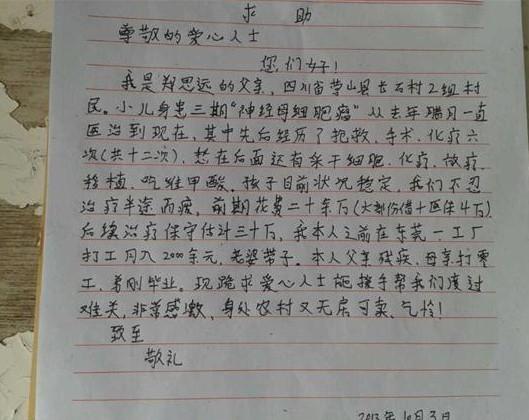 求 助
尊敬的爱心人士
您们好！
我是郑思远的父亲，四川省营山县长石村2组村
民。小儿身患三期“神经母细胞瘤”从去年腊月一直
医治到现在，其中先后经历了抢救、手术、化疗六
次（共十二次），想在后面还有采干细胞、化疗、放疗、
移植、吃维甲酸。孩子目前状况稳定，我们不忍
治疗半途而疲，前期花费二十余万（大部份借+医保4万）
后续治疗保守估计三十万，我本人之前在东莞一工厂
打工月入2000余元，老婆带子。本人父亲残疾、母亲打零
工，弟刚毕业。现跪求爱心人士施援手帮我们度过
难关，非常感激，身处农村又无房可卖、乞怜！
致至
敬礼
2013年10月3日